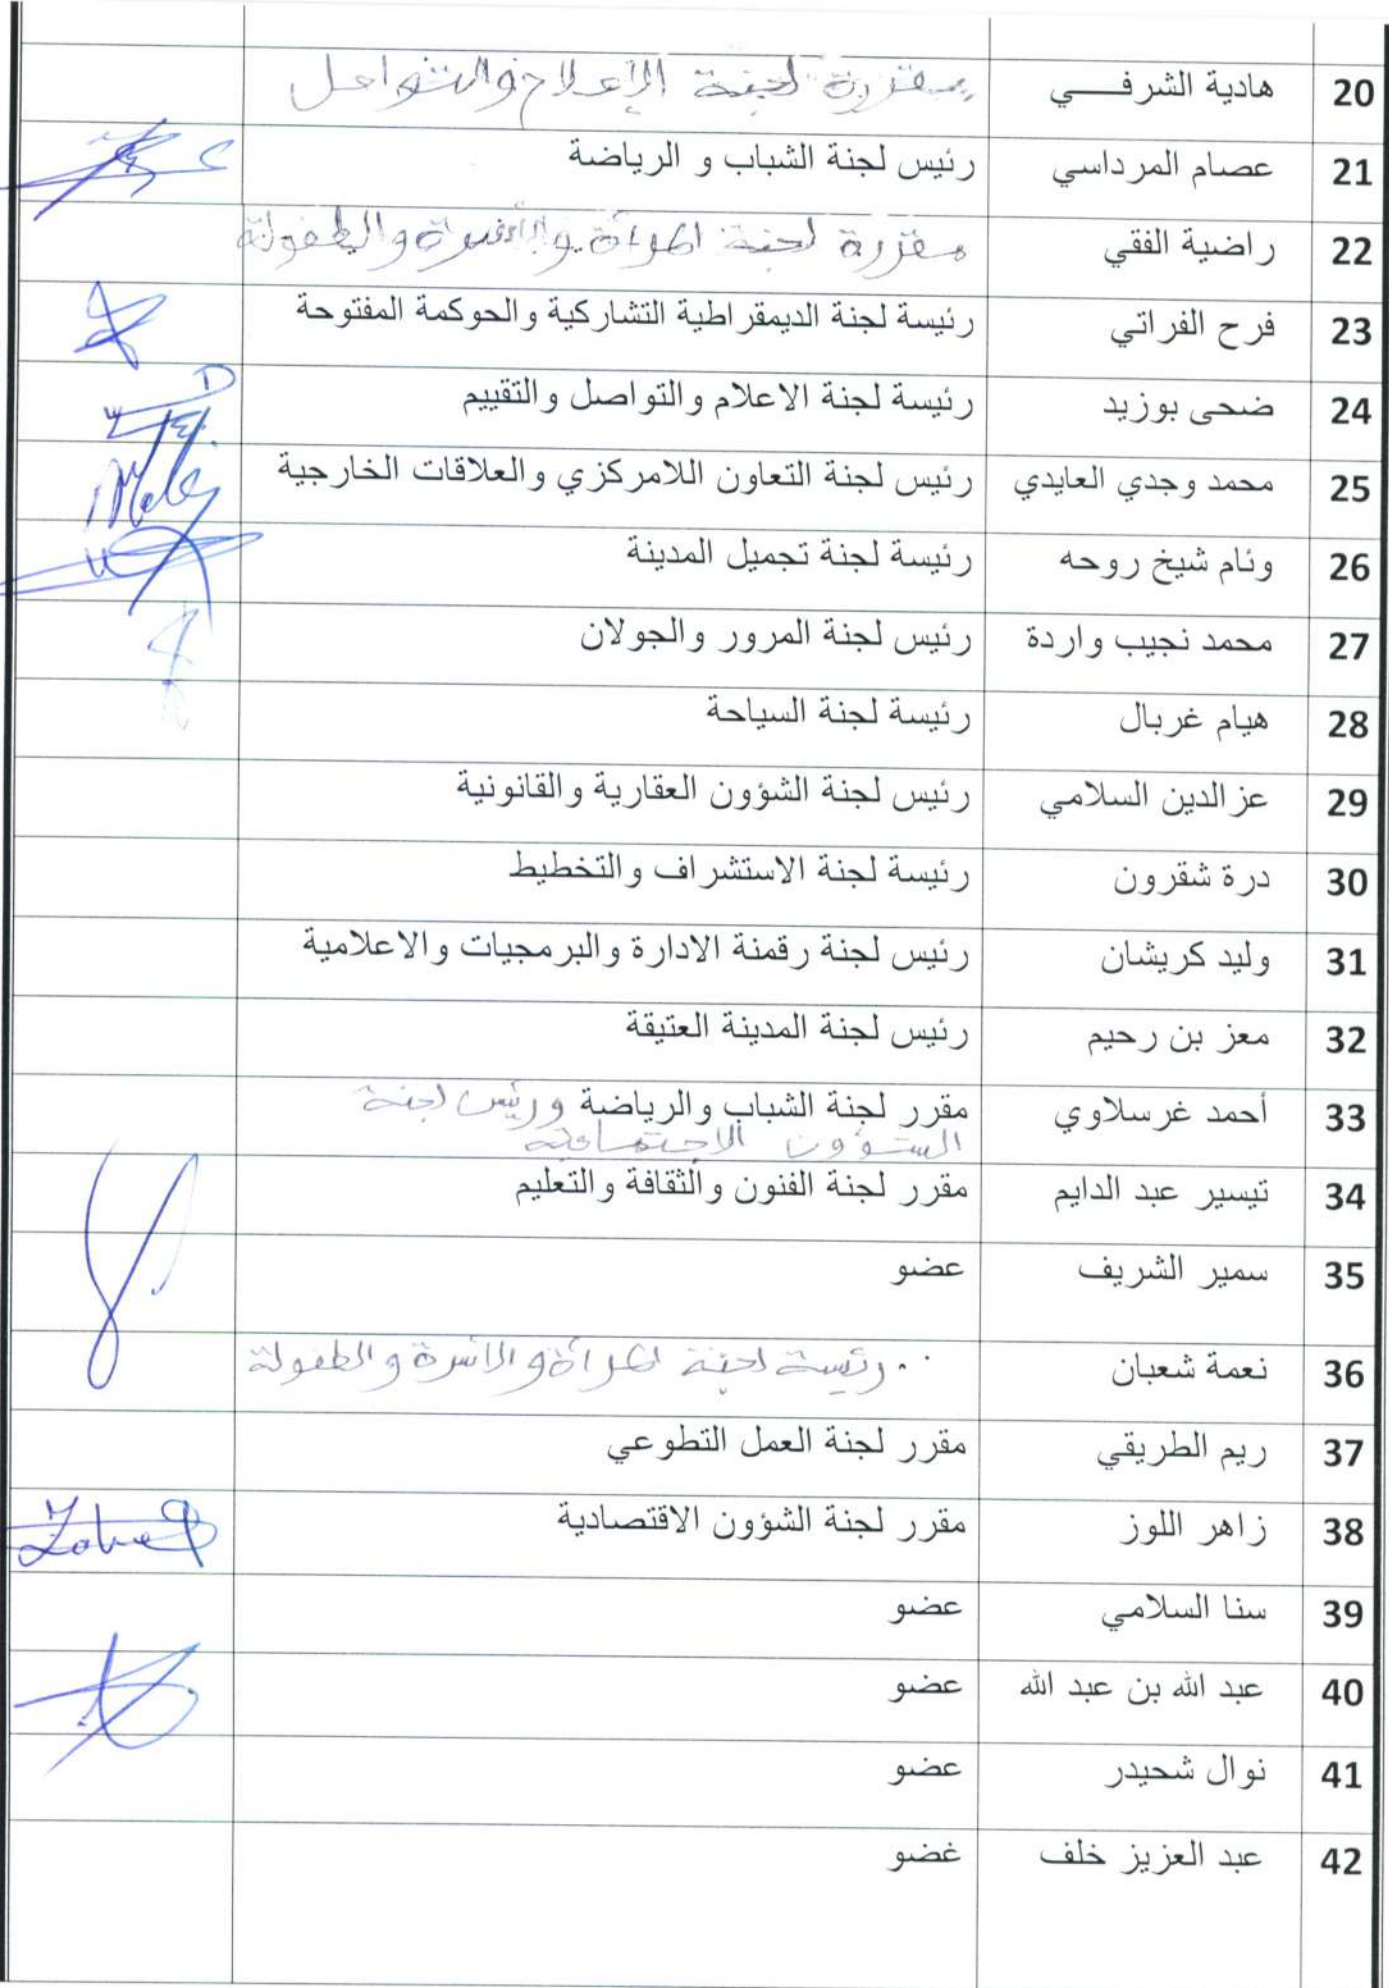 20 هادية الشرفــــي مقررة لجنة الإعلام والتواصل
21 عصام المرداسي رئيس لجنة الشباب و الرياضة
22 راضية الفقي مقررة لجنة المرأة والأسرة والطفولة
23 فرح الفراتي رئيسة لجنة الديمقراطية التشاركية والحوكمة المفتوحة
24 ضحى بوزيد رئيسة لجنة الاعلام والتواصل والتقييم
25 محمد وجدي العايدي رئيس لجنة التعاون اللامركزي والعلاقات الخارجية
26 وئام شيخ روحه رئيسة لجنة تجميل المدينة
27 محمد نجيب واردة رئيس لجنة المرور والجولان
28 هيام غربال رئيسة لجنة السياحة
29 عزالدين السلامي رئيس لجنة الشؤون العقارية والقانونية
30 درة شقرون رئيسة لجنة الاستشراف والتخطيط
31 وليد كريشان رئيس لجنة رقمنة الادارة والبرمجيات والاعلامية
32 معز بن رحيم رئيس لجنة المدينة العتيقة
33 أحمد غرسلاوي مقرر لجنة الشباب والرياضة ورئيس لجنة
الشؤون الاجتماعية
34 تيسير عبد الدايم مقرر لجنة الفنون والثقافة والتعليم
35 سمير الشريف عضو
36 نعمة شعبان رئيسة لجنة المرأة والأسرة والطفولة
37 ريم الطريقي مقرر لجنة العمل التطوعي
38 زاهر اللوز مقرر لجنة الشؤون الاقتصادية
39 سنا السلامي عضو
40 عبد الله بن عبد الله عضو
41 نوال شحيدر عضو
42 عبد العزيز خلف غضو